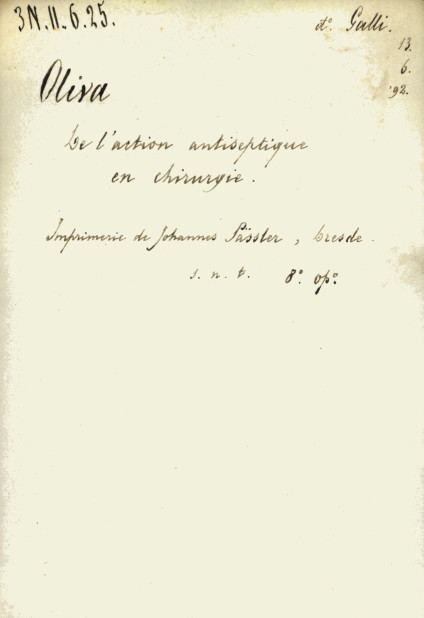 3N.11.6.25.
d.° Galli.
13.
6.
'92.
Oliva
De l'action antiseptique
en chirurgie.
Imprimerie de Johannes Pässler, Dresde.
s. n. t. 8.° op.°